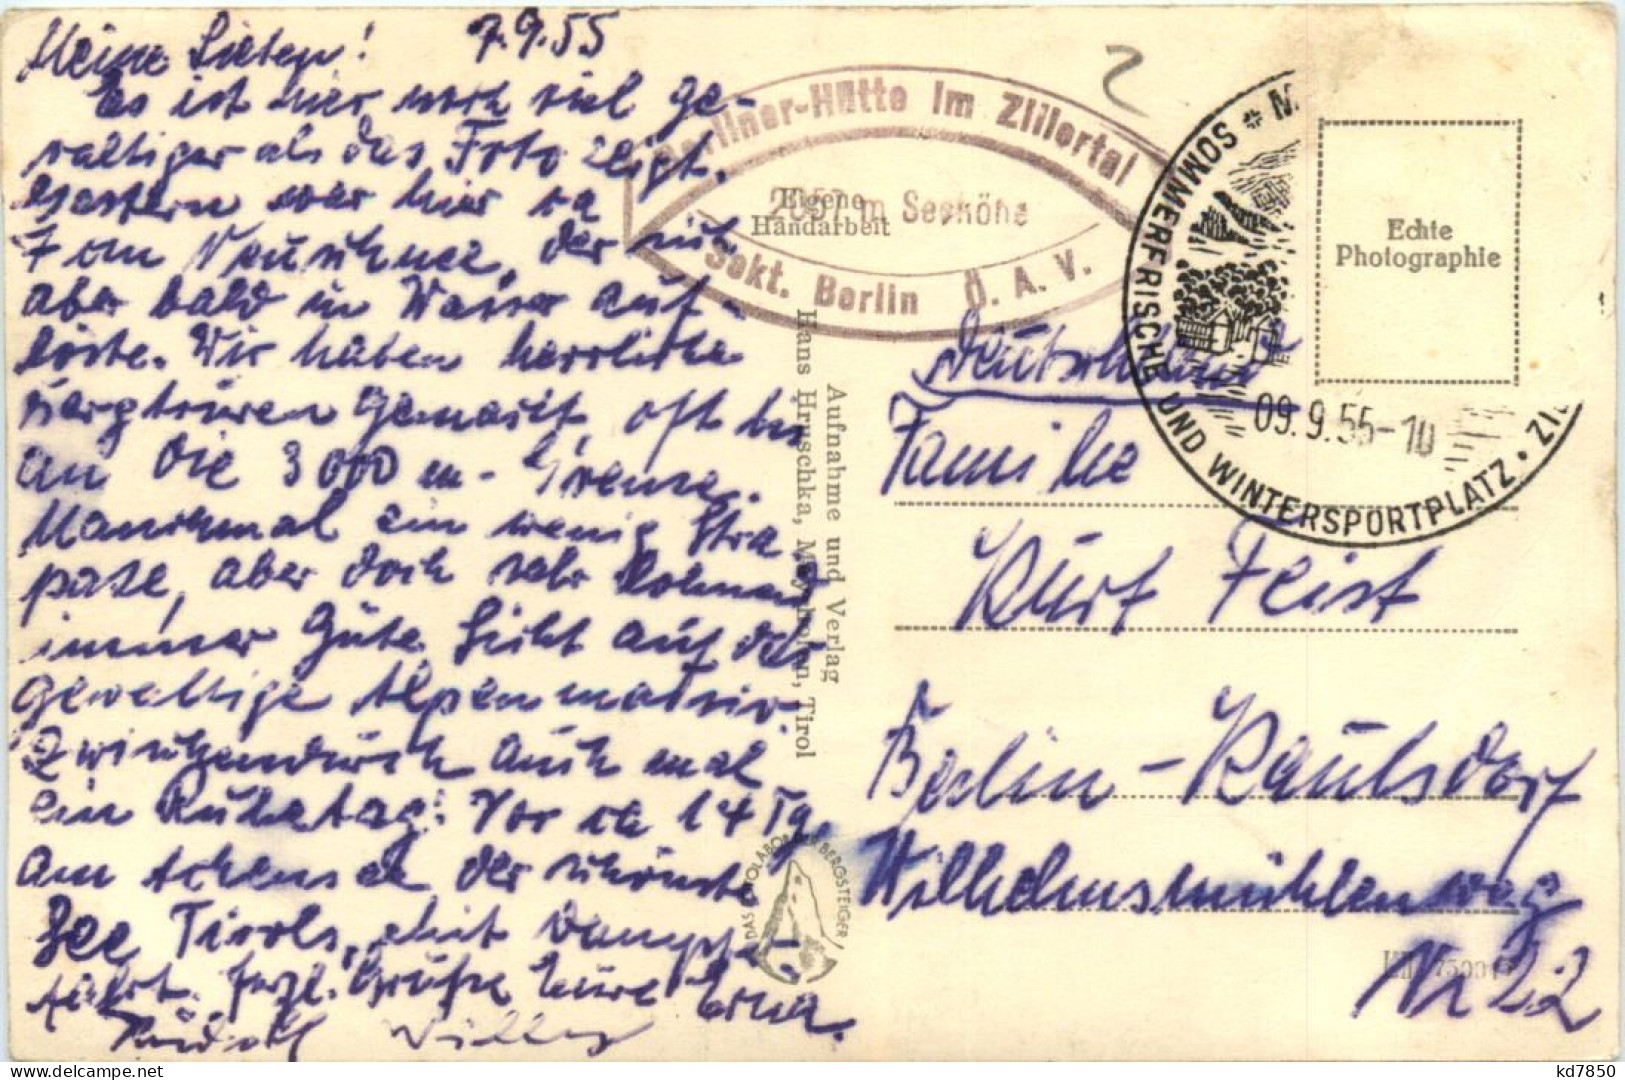 Meine Lieben! 7.9.55
Es ist hier noch viel ge-
waltiger als das Foto zeigt.
Gestern war hier ca
7 cm Neuschnee, der sich
aber bald in Wasser auf-
löste. Wir haben herrliche
Bergtouren gemacht, oft bis
an die 3000 m - Grenze.
Manchmal ein wenig Stra
paze, aber doch sehr lohnend
immer gute Sicht auf das
gewaltige Alpenmassiv.
Zwischendurch auch mal
ein Ruhetag. Vor ca 14 Tg.
am Achensee der schönste
See Tirols, mit Dampfer-
fahrt. Herzl. Grüße Eure Erna.
Rudolf Willy
Berliner-Hütte im Zillertal
2057 m Seehöhe
Sekt. Berlin Ö. A. V.
Eigene
Handarbeit
Aufnahme und Verlag
Hans Hruschka, Mayrhofen, Tirol
DAS FOTOLABOR DER BERGSTEIGER
2
SOMMERFRISCHE UND WINTERSPORTPLATZ
09.9.55-10
Echte
Photographie
Deutschland
Familie
Kurt Feist
Berlin - Kaulsdorf
Wilhelmsmühlenweg
Nr 22
kd7850